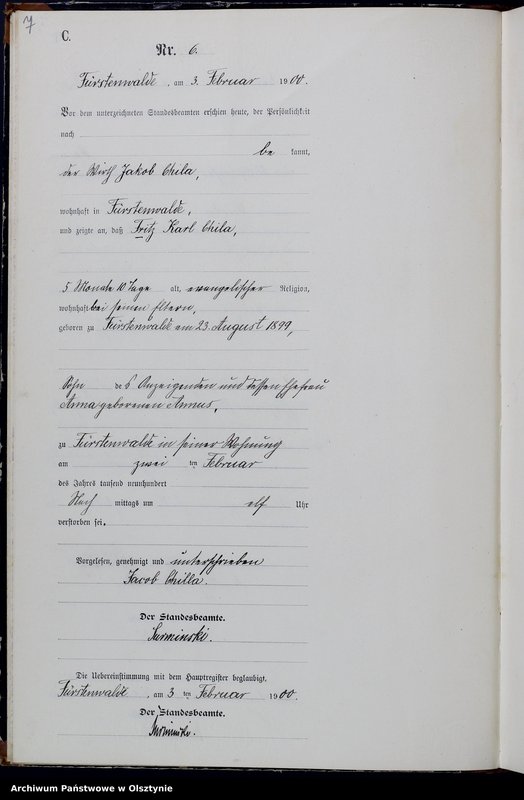 7
C.
Nr. 6.
Fürstenwalde, am 3. Februar 1900.
Vor dem unterzeichneten Standesbeamten erschien heute, der Persönlichkeit
nach
be kannt,
der Wirth Jakob Chila,
wohnhaft in Fürstenwalde,
und zeigte an, daß Fritz Karl Chila,
5 Monate 10 Tage alt, evangelischer Religion,
wohnhaft bei seinen Eltern,
geboren zu Fürstenwalde am 23. August 1899,
Sohn des Anzeigenden und dessen Ehefrau
Anna geborenen Annus,
zu Fürstenwalde in seiner Wohnung
am zwei ten Februar
des Jahres tausend neunhundert
Nach mittags um elf Uhr
verstorben sei.
Vorgelesen, genehmigt und unterschrieben
Jacob Chilla.
Der Standesbeamte.
Surminski.
Die Uebereinstimmung mit dem Hauptregister beglaubigt.
Fürstenwalde, am 3 ten Februar 1900.
Der Standesbeamte.
Surminski.
Archiwum Państwowe w Olsztynie